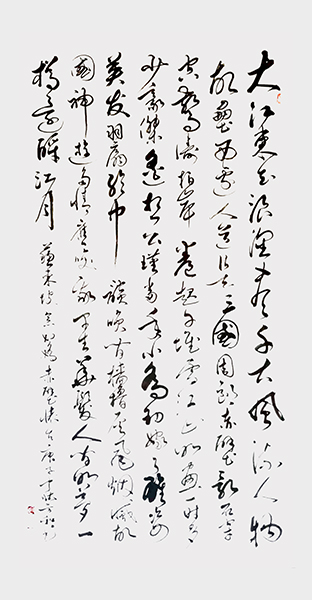 大江東去浪淘盡千古風流人物
故壘西邊人道是三國周郎赤壁亂石穿
空驚濤拍岸卷起千堆雪江山如畫一時多
少豪傑遙想公瑾當年小喬初嫁了雄姿
英发羽扇綸巾談笑間檣櫓灰飛烟滅故
國神遊多情應笑我早生華髮人間如夢一
樽還酹江月 蘇東坡念奴嬌赤壁懷古庚子